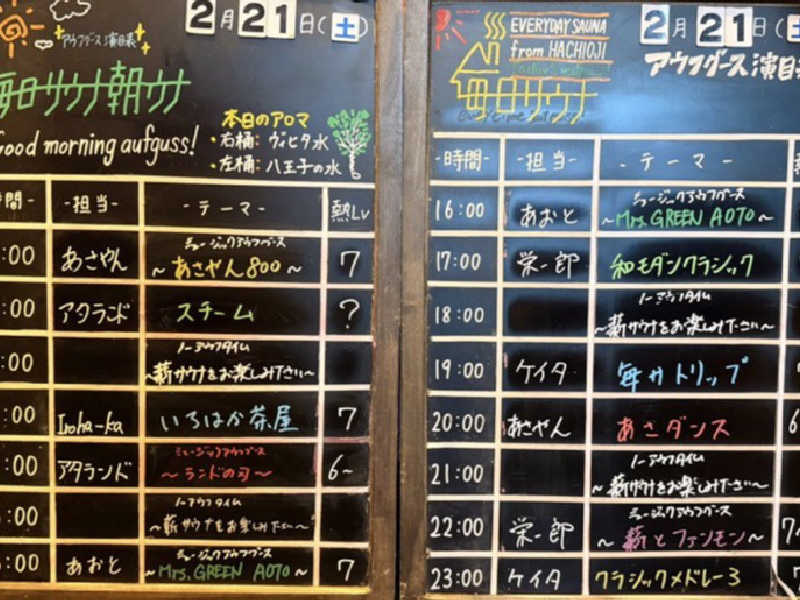 2月21日(土)
アウフグース演目表
毎日サウナ朝ウナ
Good morning aufguss!
本日のアロマ
・右桶: ヴィヒタ水
・左桶: 八王子の水
-担当- -テーマ- 熱Lv
:00 あさやん ミュージックアウフグース ～あさやん800～ 7
:00 アタランド スチーム ?
:00 ノーアウフタイム ～薪サウナをお楽しみ下さい～
:00 Iroha-ka いろはか茶屋 7
:00 アタランド ミュージックアウフグース ～ランドの刃～ 6~
:00 ノーアウフタイム ～薪サウナをお楽しみ下さい～
:00 あおと ミュージックアウフグース ～Mrs.GREEN AOTO～ 7
EVERYDAY SAUNA
from HACHIOJI
毎日サウナ
2月21日(土
アウフグース演目
-時間- -担当- -テーマ-
16:00 あおと ミュージックアウフグース ～Mrs.GREEN AOTO～
17:00 栄一郎 和モダンクラシック
18:00 ノーアウフタイム ～薪サウナをお楽しみ下さい～
19:00 ケイタ 毎サトリップ
20:00 あさやん あさダンス 6
21:00 ノーアウフタイム ～薪サウナをお楽しみ下さい～
22:00 栄一郎 ミュージックアウフグース ～薪とファンモン～ 7
23:00 ケイタ クラシックメドレー3 7